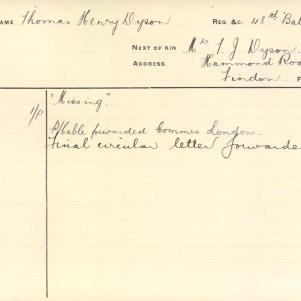 NAME Thomas Henry Dyson REG. &C. 48th Bat
NEXT OF KIN Mrs T. J. Dyson
ADDRESS Hammond Roa
Findon F
"Missing".
1/P
Cable forwarded Commrs London.
Final circular letter forwarde